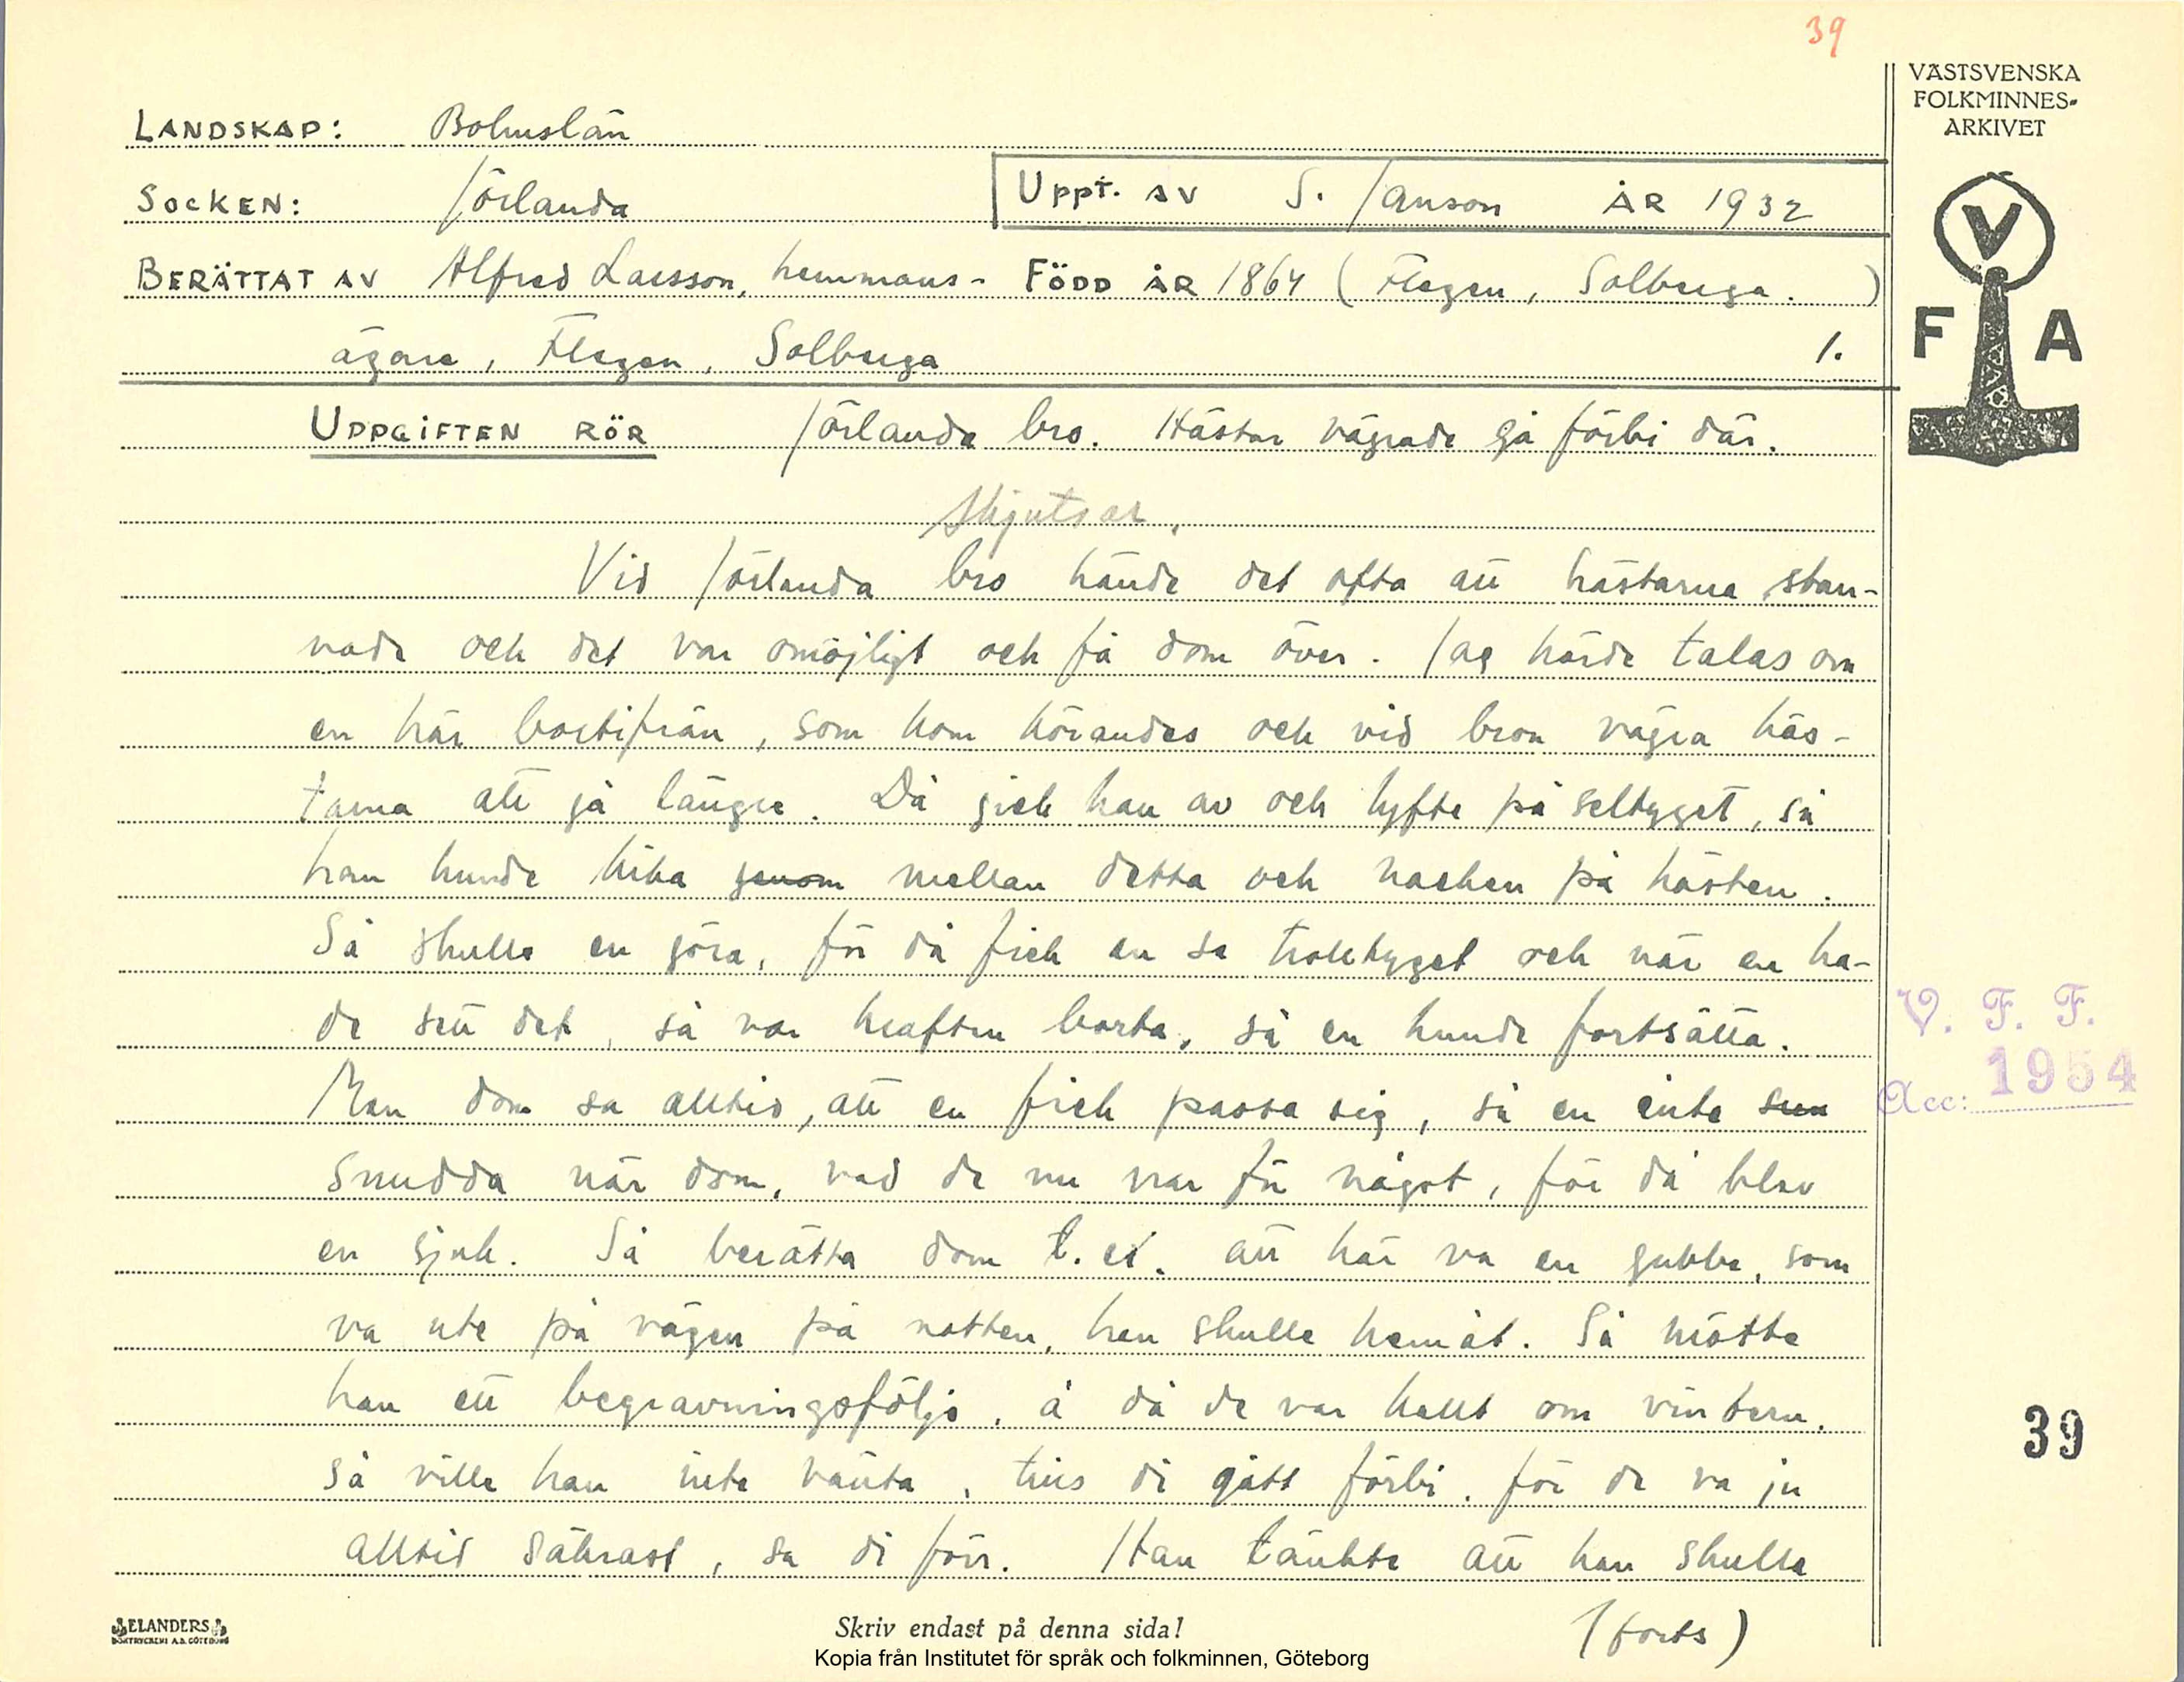 39
VÄSTSVENSKA
FOLKMINNES-
ARKIVET
LANDSKAP: Bohuslän
SOCKEN: Jörlanda
UPPT. AV S. Janson ÅR 1932
BERÄTTAT AV Alfred Larsson, hemmans- FÖDD ÅR 1864 (Flegen, Solberga.)
ägare, Flegen, Solberga 1.
V
F A
UPPGIFTEN RÖR Jörlanda bro. Hästar vägrade gå förbi där.
Skjutsar.
Vid Jörlanda bro hände det ofta att hästarna stan-
nade och det var omöjligt och få dom över. Jag hörde talas om
en här bortifrån, som kom körandes och vid bron vägra häs-
tarna att gå längre. Då gick han av och lyfte på seltyget, så
han kunde kika genom mellan detta och nacken på hästen.
Så skulle en göra, för då fick en se trolltyget och när en ha-
de sett det, så var kraften borta, så en kunde fortsätta.
Men dom sa alltid, att en fick passa sig, så en inte snu
snudda när dom, vad de nu var för något, för då blev
en sjuk. Så berätta dom t. ex. att här va en gubbe, som
va ute på vägen på natten, han skulle hemåt. Så mötte
han ett begravningsfölje, å då de var kallt om vintern,
så ville han inte vänta, tills di gått förbi, för de va ju
alltid säkrast, sa di förr. Han tänkte att han skulle
(forts)
V. F. F.
Acc: 1954
39
ELANDERS
BOKTRYCKERI A.B. GÖTEBORG
Skriv endast på denna sida!
Kopia från Institutet för språk och folkminnen, Göteborg